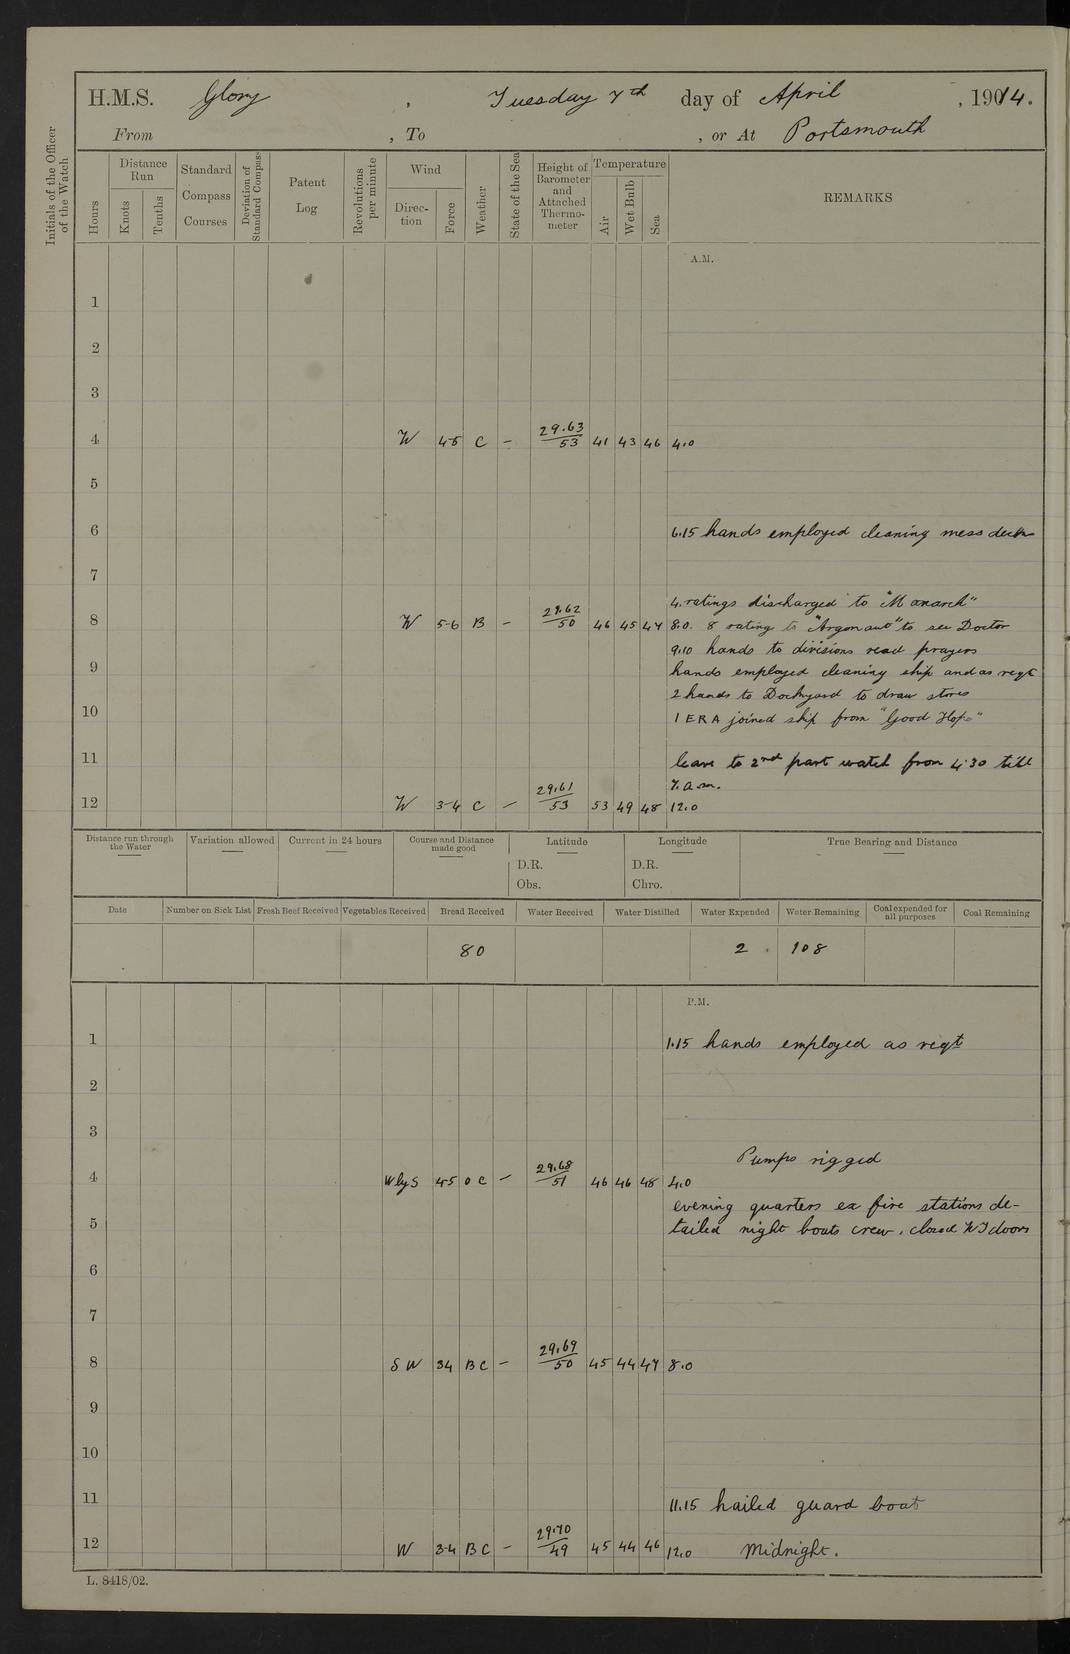 H.M.S. Glory , Tuesday 7th day of April , 19014.
From , To , or At Portsmouth
Initials of the Officer of the Watch
Hours
Distance Run
Knots
Tenths
Standard Compass Courses
Deviation of Standard Compass
Patent Log
Revolutions per minute
Wind
Direction
Force
Weather
State of the Sea
Height of Barometer and Attached Thermometer
Temperature
Air
Wet Bulb
Sea
REMARKS
A.M.
1
2
3
4 W 4-5 C – 29.63/53 41 43 46 4.0
5
6 6.15 hands employed cleaning mess decks
7
4. ratings discharged to "Monarch"
8 W 5-6 B – 29.62/50 46 45 47 8.0. 8 ratings to "Argonaut" to see Doctor
9.10 hands to divisions read prayers
9 hands employed cleaning ship and as reqt
2 hands to Dockyard to draw stores
10 1 ERA joined ship from "Good Hope"
11 leave to 2nd part watch from 4.30 till
7.a.m.
12 W 3-4 C – 29.61/53 53 49 48 12.0
Distance run through the Water
Variation allowed
Current in 24 hours
Course and Distance made good
Latitude
D.R.
Obs.
Longitude
D.R.
Chro.
True Bearing and Distance
Date
Number on Sick List
Fresh Beef Received
Vegetables Received
Bread Received
Water Received
Water Distilled
Water Expended
Water Remaining
Coal expended for all purposes
Coal Remaining
80 2 108
P.M.
1 1.15 hands employed as reqt
2
3
Pumps rigged
4 WbyS 45 O C – 29.68/51 46 46 48 4.0
evening quarters ex fire stations de-
5 tailed night boats crew. closed WT doors
6
7
8 SW 34 BC – 29.69/50 45 44 47 8.0
9
10
11 11.15 hailed guard boat
12 W 3-4 BC – 29.70/49 45 44 46 12.0 Midnight.
L. 8418/02.